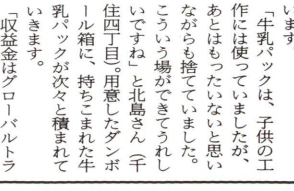 います
「牛乳パックは、子供の工
作には使っていましたが、
あとはもったいないと思い
ながらも捨てていました。
こういう場ができてうれし
いですね」と北島さん（千
住四丁目）。用意したダンボ
ール箱に、持ちこまれた牛
乳パックが次々と積まれて
いきます。
「収益金はグローバルトラ